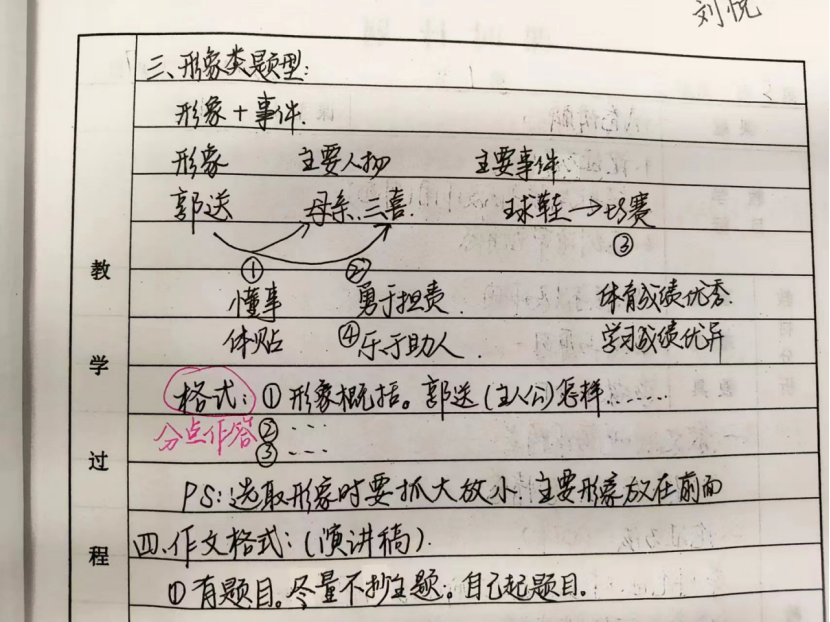 刘悦
三、形象类题型:
形象 + 事件.
形象 主要人物 主要事件
郭送 母亲、三喜. 球鞋→比赛
① ② ③
懂事 勇于担责 体育成绩优秀.
体贴 ④乐于助人. 学习成绩优异
格式: ①形象概括。郭送(主人公)怎样……
分点作答 ② ...
③ ...
PS: 选取形象时要抓大放小. 主要形象放在前面
四、作文格式:(演讲稿).
①有题目。尽量不抄主题。自己起题目.
教
学
过
程